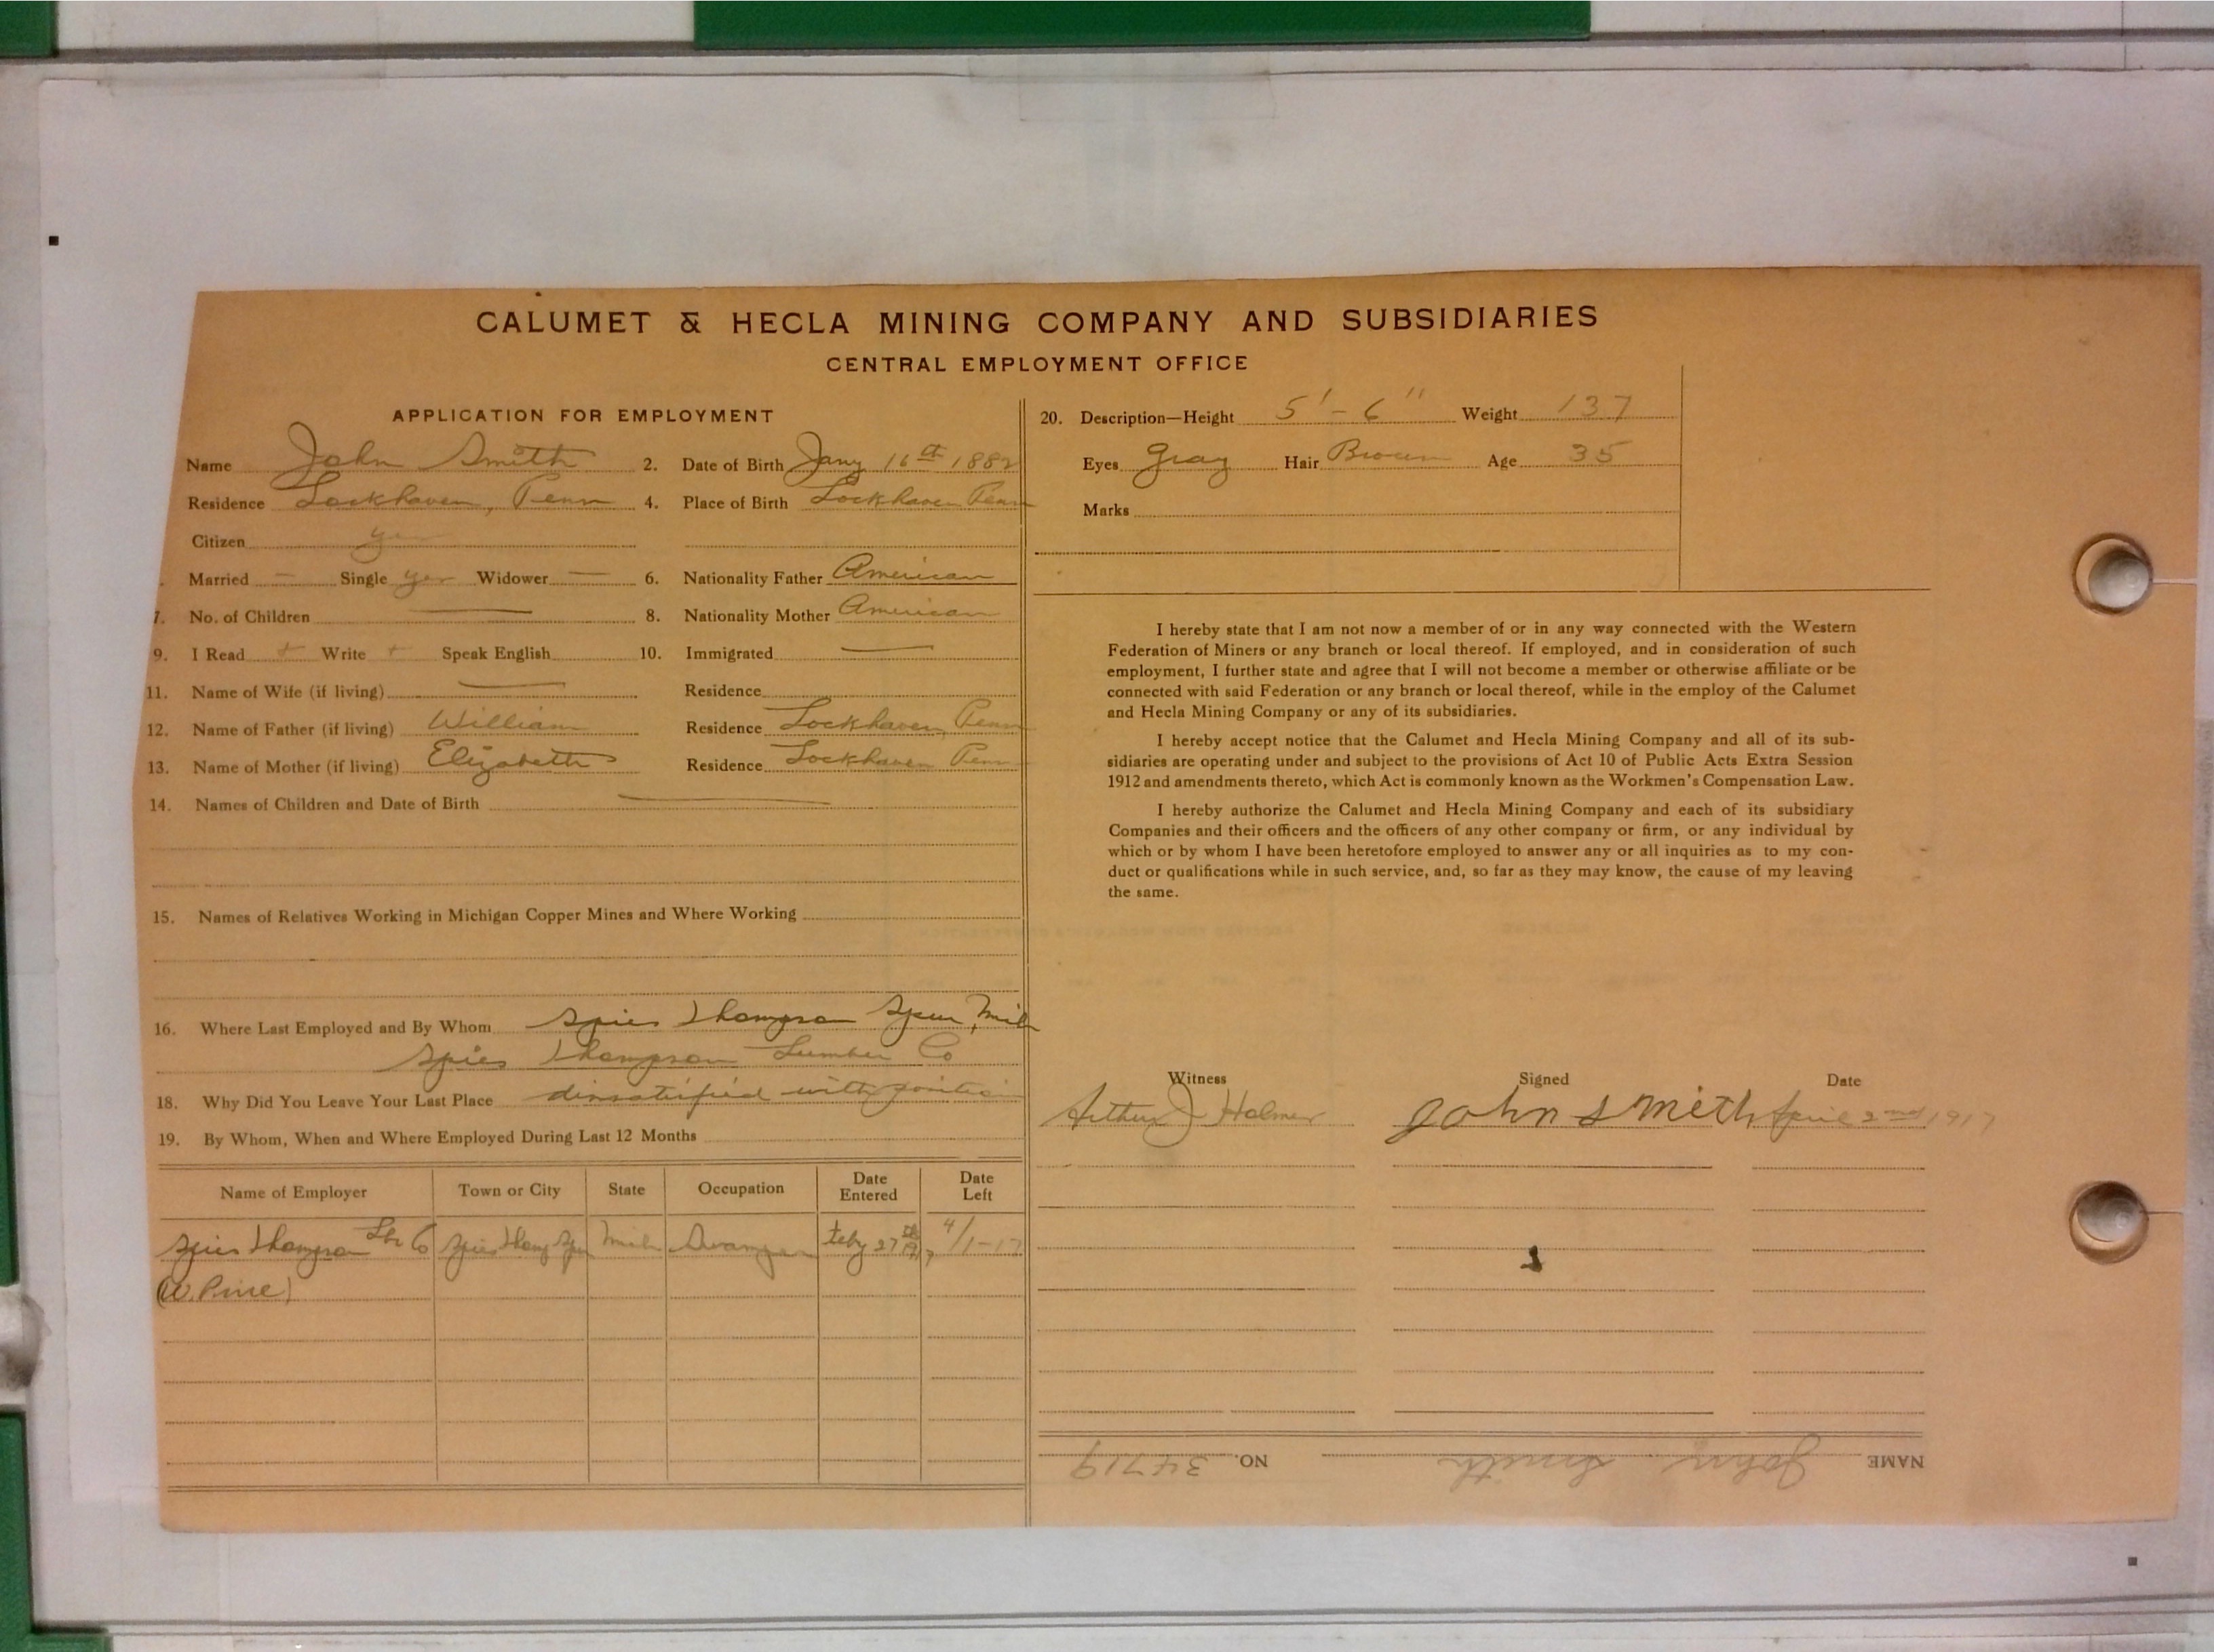 CALUMET & HECLA MINING COMPANY AND SUBSIDIARIES
CENTRAL EMPLOYMENT OFFICE
APPLICATION FOR EMPLOYMENT
Name John Smith 2. Date of Birth Jany 16th 1882
Residence Lockhaven, Penn 4. Place of Birth Lockhaven Penn
Citizen yes
Married — Single yes Widower — 6. Nationality Father American
7. No. of Children — 8. Nationality Mother American
9. I Read + Write + Speak English 10. Immigrated —
11. Name of Wife (if living) — Residence
12. Name of Father (if living) William Residence Lockhaven, Penn
13. Name of Mother (if living) Elizabeth Residence Lockhaven Penn
14. Names of Children and Date of Birth —
15. Names of Relatives Working in Michigan Copper Mines and Where Working
16. Where Last Employed and By Whom Spies Thompson Spur, Mich
Spies Thompson Lumber Co
18. Why Did You Leave Your Last Place dissatisfied with position
19. By Whom, When and Where Employed During Last 12 Months
Name of Employer Town or City State Occupation Date Entered Date Left
Spies Thompson Lbr Co Spies Thomp Spur Mich Swamper Feby 27th 1917 4/1-17
(W. Pine)
20. Description—Height 5'-6" Weight 137
Eyes Gray Hair Brown Age 35
Marks
I hereby state that I am not now a member of or in any way connected with the Western
Federation of Miners or any branch or local thereof. If employed, and in consideration of such
employment, I further state and agree that I will not become a member or otherwise affiliate or be
connected with said Federation or any branch or local thereof, while in the employ of the Calumet
and Hecla Mining Company or any of its subsidiaries.
I hereby accept notice that the Calumet and Hecla Mining Company and all of its sub-
sidiaries are operating under and subject to the provisions of Act 10 of Public Acts Extra Session
1912 and amendments thereto, which Act is commonly known as the Workmen's Compensation Law.
I hereby authorize the Calumet and Hecla Mining Company and each of its subsidiary
Companies and their officers and the officers of any other company or firm, or any individual by
which or by whom I have been heretofore employed to answer any or all inquiries as to my con-
duct or qualifications while in such service, and, so far as they may know, the cause of my leaving
the same.
Witness Signed Date
Arthur J Holmer John Smith April 2nd 1917
NAME John Smith NO. 34719